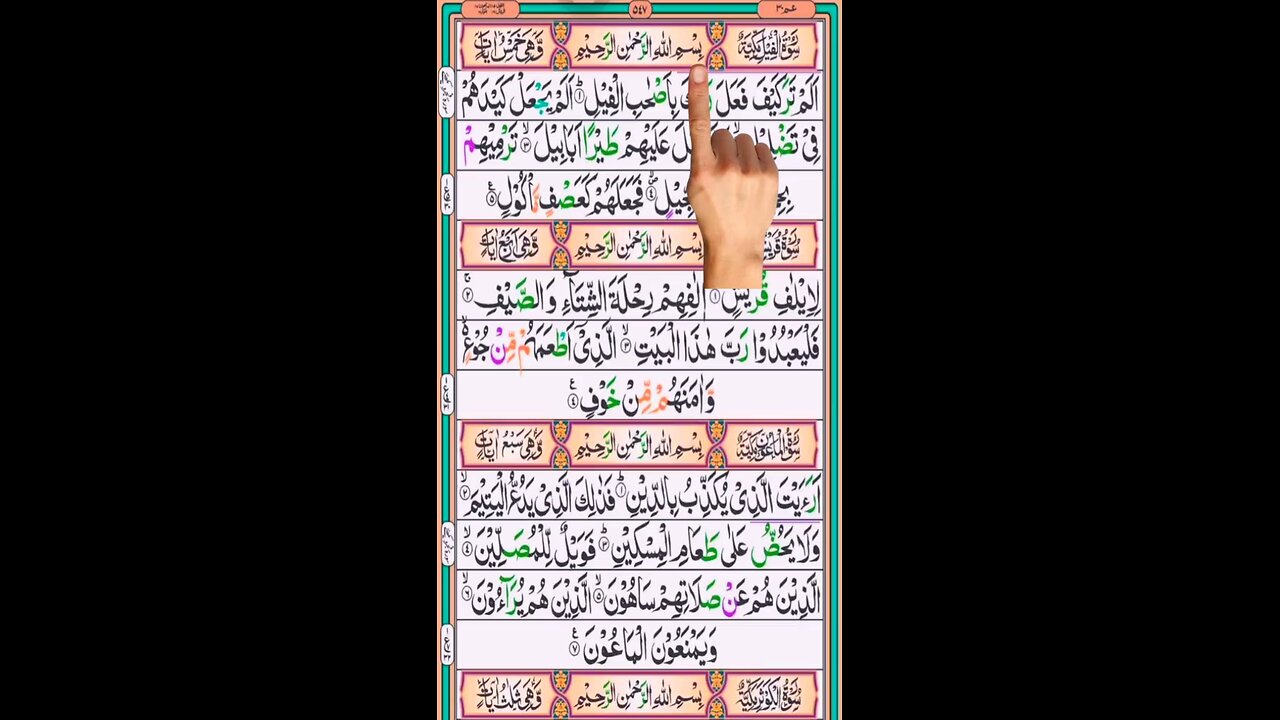 عم ٣٠ ٥٤٧
سُوْرَةُ الْفِيْلِ مَكِّيَّةٌ بِسْمِ اللهِ الرَّحْمٰنِ الرَّحِيْمِ وَّهِيَ خَمْسُ اٰيَاتٍ
اَلَمْ تَرَ كَيْفَ فَعَلَ بِاَصْحٰبِ الْفِيْلِ ؕ۱ اَلَمْ يَجْعَلْ كَيْدَهُمْ
فِيْ عَلَيْهِمْ طَيْرًا اَبَابِيْلَ ۙ۳ تَرْمِيْهِمْ
فَجَعَلَهُمْ كَعَصْفٍ مَّاْكُوْلٍ ۵
سُوْرَةُ قُرَيْشٍ بِسْمِ اللهِ الرَّحْمٰنِ الرَّحِيْمِ وَّهِيَ اَرْبَعُ اٰيَاتٍ
لِاِيْلٰفِ قُرَيْشٍ ۙ۱ اٖلٰفِهِمْ رِحْلَةَ الشِّتَآءِ وَالصَّيْفِ ۚ۲
فَلْيَعْبُدُوْا رَبَّ هٰذَا الْبَيْتِ ۙ۳ الَّذِيْٓ اَطْعَمَهُمْ مِّنْ جُوْعٍ ۙ
وَّاٰمَنَهُمْ مِّنْ خَوْفٍ ۴
سُوْرَةُ الْمَاعُوْنِ مَكِّيَّةٌ بِسْمِ اللهِ الرَّحْمٰنِ الرَّحِيْمِ وَّهِيَ سَبْعُ اٰيَاتٍ
اَرَءَيْتَ الَّذِيْ يُكَذِّبُ بِالدِّيْنِ ؕ۱ فَذٰلِكَ الَّذِيْ يَدُعُّ الْيَتِيْمَ ۙ۲
وَلَا يَحُضُّ عَلٰى طَعَامِ الْمِسْكِيْنِ ؕ۳ فَوَيْلٌ لِّلْمُصَلِّيْنَ ۙ۴
الَّذِيْنَ هُمْ عَنْ صَلَاتِهِمْ سَاهُوْنَ ۙ۵ الَّذِيْنَ هُمْ يُرَآءُوْنَ ۙ۶
وَيَمْنَعُوْنَ الْمَاعُوْنَ ۷
سُوْرَةُ الْكَوْثَرِ مَكِّيَّةٌ بِسْمِ اللهِ الرَّحْمٰنِ الرَّحِيْمِ وَّهِيَ ثَلٰثُ اٰيَاتٍ